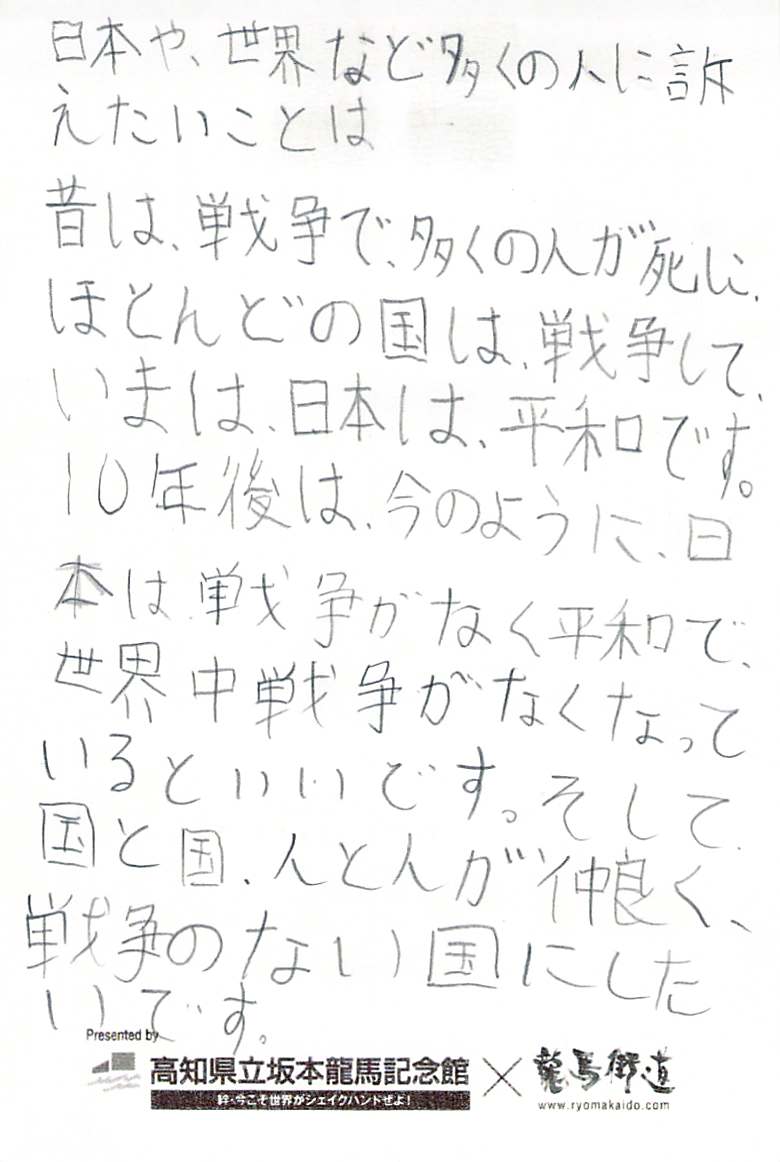 日本や、世界など多くの人に訴
えたいことは
昔は、戦争で、多くの人が死に、
ほとんどの国は、戦争して、
いまは、日本は、平和です。
10年後は、今のように、日
本は、戦争がなく平和で、
世界中戦争がなくなって
いるといいです。そして、
国と国、人と人が仲良く、
戦争のない国にした
いです。
Presented by
高知県立坂本龍馬記念館×龍馬街道
絆・今こそ世界がシェイクハンドぜよ!
www.ryomakaido.com